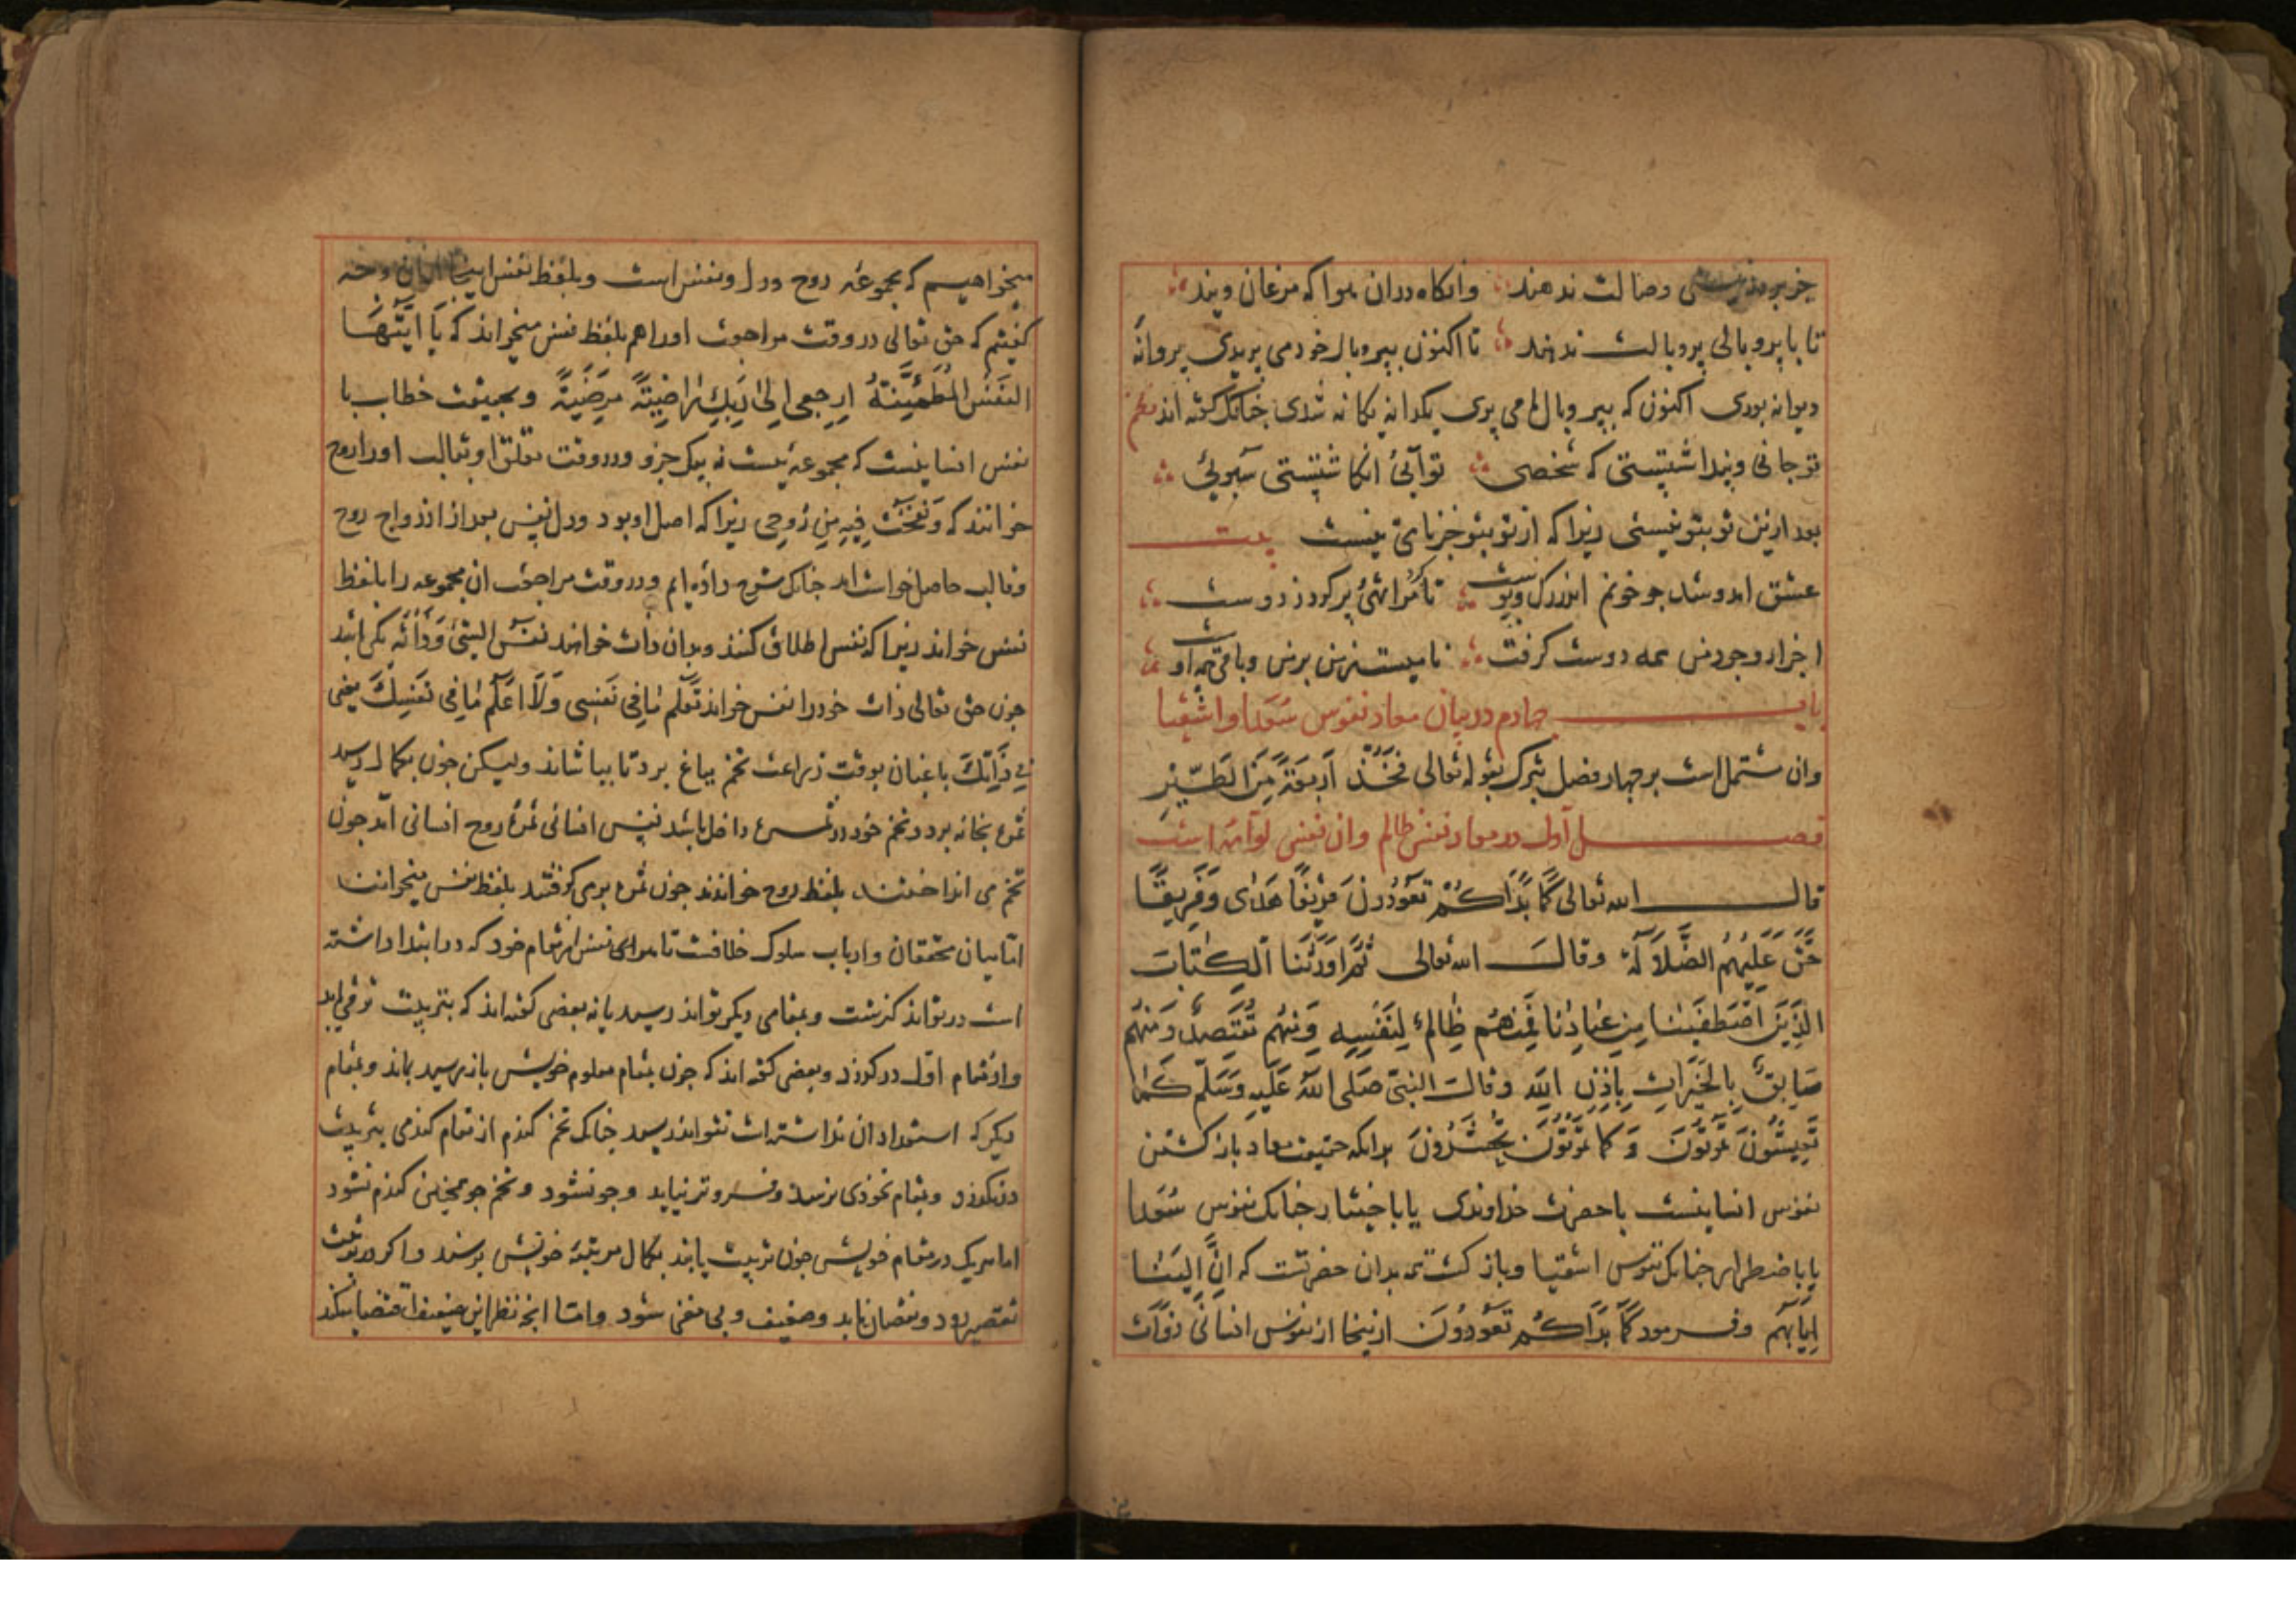 وصالت ندهند وانکاه دران هوا که مرغان ویند
تا با پر و بالی پر و بالت ندهند تا اکنون بپر و بال خود می پریدی پروانهٔ
دیوانه بودی اکنون که بپر و بال ما می پری یکدانه یکانه شدی جنانک کفته اند نظم
تو جانی و بنداشتستی که شخصی تو آبی انکاشتستی سبویی
بعد ازین تو بتو نیستی زیرا که از تو بتو جز نامی نیست بیت
عشق امد و شد جو خونم اندر رک و پوست تا کرد مرا تهی و پر کرد ز دوست
اجزاء وجود من همه دوست کرفت نامیست ز من بر من و باقی همه اوست
باب چهارم در بیان معاد نفوس سعدا و اشقیا
وان مشتمل است بر جهار فصل تبرک بقوله تعالی فَخُذْ اَرْبَعَةً مِنَ الطَّیْرِ
فصل اول در معاد نفس ظالم وان نفس لوامه است
قال الله تعالی کَمَا بَدَاَکُمْ تَعُودُونَ فَرِیقًا هَدٰی وَفَرِیقًا
حَقَّ عَلَیْهِمُ الضَّلَالَةُ وقال الله تعالی ثُمَّ اَوْرَثْنَا الْکِتَابَ
الَّذِینَ اصْطَفَیْنَا مِنْ عِبَادِنَا فَمِنْهُمْ ظَالِمٌ لِنَفْسِهِ وَمِنْهُمْ مُقْتَصِدٌ وَمِنْهُمْ
سَابِقٌ بِالْخَیْرَاتِ بِاِذْنِ اللهِ وقال النبی صَلَّی اللهُ عَلَیْهِ وَسَلَّم کَمَا
تَعِیشُونَ تَمُوتُونَ وَکَمَا تَمُوتُونَ تُحْشَرُونَ بدانکه حقیقت معاد باز کشتن
نفوس انسانیست با حضرت خداوندی یا باختیار جنانک نفوس سعدا
یا باضطرار جنانک نفوس اشقیا و باز کشت همه بدان حضرتست که اِنَّ اِلَیْنَا
اِیَابَهُمْ و فرمود کَمَا بَدَاَکُمْ تَعُودُونَ از نفوس انسانی ذوات
میخواهیم که مجموعه روح ودل ونفس است وبلفظ نفس
کفتیم که حق تعالی در وقت مراجعت او را هم بلفظ نفس میخواند که یَا اَیَّتُهَا
النَّفْسُ الْمُطْمَئِنَّةُ اِرْجِعِی اِلٰی رَبِّکِ رَاضِیَةً مَرْضِیَّةً وبحقیقت خطاب با
نفس انسانیست که مجموعهٔ است نه بیک جزو ودر وقت تعلق او بقالب او را روح
خوانند که وَنَفَخْتُ فِیهِ مِنْ رُوحِی زیرا که اصل او بود ودل ونفس بعد از ازدواج روح
وقالب حاصل خواست امد جنانک شرح داده ایم ودر وقت مراجعت ان مجموعه را بلفظ
نفس خواند زیرا که نفس اطلاق کنند وبدان ذات خواهند نفس الشئ وَذَاتُهُ یکی باشد
جون حق تعالی ذات خود را نفس خواند تَعْلَمُ مَا فِی نَفْسِی وَلَا اَعْلَمُ مَا فِی نَفْسِکَ یعنی
فِی ذَاتِکَ باغبان بوقت زراعت تخم بباغ برد تا بپاشاند ولیکن جون بکمال رسید
ثمره بخانه برد وتخم خود در ثمره داخل باشد نفس انسانی ثمرهٔ روح انسانی امد جون
تخم می انداختند بلفظ روح خواندند جون ثمره برمی کرفتند بلفظ نفس میخوانند
اما میان محققان وارباب سلوک خلافست تا هوای نفس از مقام خود که در ابتدا داشته
است در تواند کذشت وبمقامی دیکر تواند رسید یا نه بعضی کفته اند که بتربیت ترقی یابد
واز مقام اول در کذرد وبعضی کفته اند که جون بمقام معلوم خویش باز رسید بماند وبمقام
دیکر که استعداد ان نداشته است نتواند رسید جنانک تخم کندم از مقام کندمی بتربیت
در نکذرد وبمقام نخودی نرسد وفروتر نیاید وجو نشود وتخم جو همچنین کندم نشود
اما هریک در مقام خویش جون تربیت یابند بکمال مرتبهٔ خویش برسند واکر در تربیت
تقصیر رود ونقصان یابد وضعیف وبی مغز شود واما انجه نظر این ضعیف اقتضا میکند